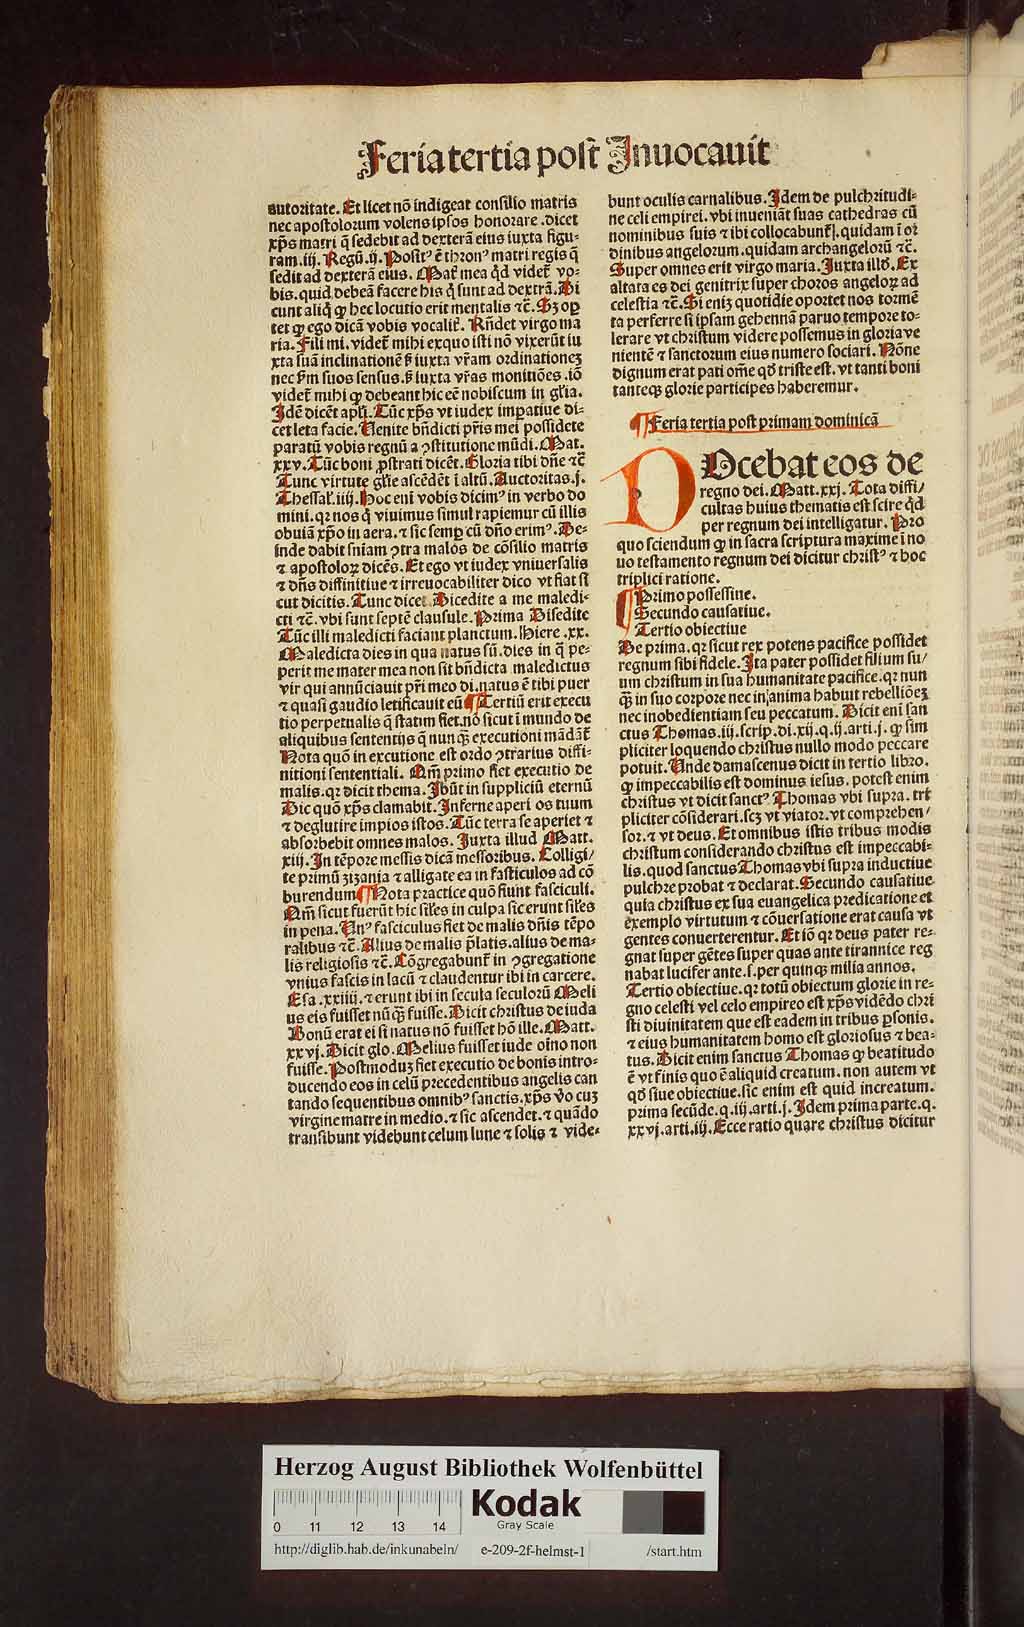 Feria tertia post̃ Inuocauit
autoritate. Et licet nō indigeat consilio matris
nec apostolorum volens ipsos honorare .dicet
xp̄s matri q̄ sedebit ad dexterā eius iuxta figu-
ram .iij. Regū.ij. Positꝰ ē thronꝰ matri regis q̄
sedit ad dexterā eius. Mat̄ mea qͥd videt̄ vo-
bis. quid debeā facere his qͥ sunt ad dextrā. Di
cunt aliqͥ ꝙ hec locutio erit mentalis ⁊c̄. Sꝫ opꝫ
tet ꝙ ego dicā vobis vocalit̄. Rn̄det virgo ma
ria. Fili mi. videt̄ mihi exquo isti nō vixerūt iu
xta suā inclinationē sꝫ iuxta vr̄am ordinationeꝫ
nec ẜm suos sensus. sꝫ iuxta vr̄as monitiōes .iō
videt̄ mihi ꝙ debeant hic eē nobiscum in gl̄ia.
Idē dicēt apl̄i. Tūc xp̄s vt iudex imꝑatiue di-
cet leta facie. Uenite bn̄dicti pr̄is mei possidete
paratū vobis regnū a ꝯstitutione mūdi. Mat.
xxv. Tūc boni ꝓstrati dicēt. Gloria tibi dn̄e ⁊c̄
Tunc virtute gl̄ie ascēdēt ī altū. Auctoritas .j.
Thessal̄. iiij. Hoc eni vobis dicimꝰ in verbo do
mini. qꝛ nos qͥ viuimus simul rapiemur cū illis
obuiā xp̄o in aera. ⁊ sic semꝑ cū dn̄o erimꝰ. De-
inde dabit sn̄iam ꝯtra malos de cōsilio matris
⁊ apostoloꝝ dicēs. Et ego vt iudex vniuersalis
⁊ dn̄s diffinitiue ⁊ irreuocabiliter dico vt fiat si
cut dicitis. Tunc dicet Dicedite a me maledi-
cti ⁊c̄. vbi sunt septē clausule. Prima Disedite
Tūc illi maledicti faciant planctum. Hiere .xx.
Maledicta dies in qua natus sū. dies in q̄ pe-
perit me mater mea non sit bn̄dicta maledictus
vir qui annūciauit pr̄i meo di. natus ē tibi puer
⁊ quasi gaudio letificauit eū ¶ Tertiū erit execu
tio perpetualis q̄ statim fiet. nō sicut ī mundo de
aliquibus sententijs q̄ nunqͣꝫ executioni mādāt̄
Nota quō in excutione est ordo ꝯtrarius diffi-
nitioni sententiali. Nam̄ primo fiet executio de
malis. qꝛ dicit thema. Ibūt in suppliciū eternū
Dic quō xp̄s clamabit. Inferne aperi os tuum
⁊ deglutire impios istos. Tūc terra se aperiet ⁊
absorbebit omnes malos. Juxta illud Matt.
xiij. In tēpore messis dicā messoribus. Colligi/
te primū zizania ⁊ alligate ea in fasticulos ad cō
burendum ¶ Nota practice quō fiunt fasciculi.
Nam̄ sicut fuerūt hic sil̄es in culpa sic erunt sil̄es
in pena. Unꝰ fasciculus fiet de malis dn̄is tēpo
ralibus ⁊c̄. Alius de malis p̄latis. alius de ma-
lis religiosis ⁊c̄. Cōgregabunt̄ in ꝯgregatione
vnius fascis in lacū ⁊ claudentur ibi in carcere.
Esa .xxiiij. ⁊ erunt ibi in secula seculorū Meli
us eis fuisset nūqͣꝫ fuisse. Dicit christus de iuda
Bonū erat ei si natus nō fuisset hō ille. Matt.
xxvj. Dicit glo. Melius fuisset iude oīno non
fuisse. Postmoduꝫ fiet executio de bonis intro-
ducendo eos in celū precedentibus angelis can
tando sequentibus omnibꝰ sanctis. xp̄s v̄o cuꝫ
virgine matre in medio. ⁊ sic ascendet. ⁊ quādo
transibunt videbunt celum lune ⁊ solis ⁊ vide-
bunt oculis carnalibus. Idem de pulchritudi-
ne celi empirei. vbi inueniāt suas cathedras cū
nominibus suis ⁊ ibi collocabunt̄. quidam ī oꝛ
dinibus angelorum. quidam archangelorū ⁊c̄.
Super omnes erit virgo maria. Juxta illd̄. Ex
altata es dei genitrix super choros angeloꝝ ad
celestia ⁊c̄. Si eniꝫ quotidie oportet nos tormē
ta perferre si ipsam gehennā paruo tempore to-
lerare vt christum videre possemus in gloria ve
nientē ⁊ sanctorum eius numero sociari. Nōne
dignum erat pati om̄e qd̄ triste est. vt tanti boni
tanteqꝫ glorie participes haberemur.
¶ Feria tertia post primam dominicā
DOcebat eos de
regno dei. Matt. xxj. Tota diffi/
cultas huius thematis est scire qͥd
per regnum dei intelligatur. Pro
quo sciendum ꝙ in sacra scriptura maxime ī no
uo testamento regnum dei dicitur christꝰ ⁊ hoc
triplici ratione.
¶ Primo possessiue.
Secundo causatiue.
Tertio obiectiue
De prima. qꝛ sicut rex potens pacifice possidet
regnum sibi fidele. Ita pater possidet filium su/
um christum in sua humanitate pacifice. qꝛ nun
qͣꝫ in suo corpore nec in anima habuit rebelliōeꝫ
nec inobedientiam seu peccatum. Dicit eni san
ctus Thomas .iij. scrip. di. xij. q. ij. arti. j. ꝙ sim
pliciter loquendo christus nullo modo peccare
potuit. Unde damascenus dicit in tertio libro.
ꝙ impeccabilis est dominus iesus. potest enim
christus vt dicit sanctꝰ Thomas vbi supra. tri
pliciter cōsiderari. scꝫ vt viator. vt comprehen/
sor. ⁊ vt deus. Et omnibus istis tribus modis
christum considerando christus est impeccabi-
lis. quod sanctus Thomas vbi supra inductiue
pulchre probat ⁊ declarat. Secundo causatiue
quia christus ex sua euangelica predicatione et
exemplo virtutum ⁊ cōuersatione erat causa vt
gentes conuerterentur. Et iō qꝛ deus pater re-
gnat super gētes super quas ante tirannice reg
nabat lucifer ante .s. per quinqꝫ milia annos.
Tertio obiectiue. qꝛ totū obiectum glorie in re-
gno celesti vel celo empireo est xp̄s vidēdo chri
sti diuinitatem que est eadem in tribus ꝑsonis.
⁊ eius humanitatem homo est gloriosus ⁊ bea-
tus. Dicit enim sanctus Thomas ꝙ beatitudo
ē vt finis quo ē aliquid creatum. non autem vt
qd̄ siue obiectiue. sic enim est quid increatum.
prima secūde. q. iij. arti. j. Idem prima parte. q.
xxvj. arti. iij. Ecce ratio quare christus dicitur
Herzog August Bibliothek Wolfenbüttel
Kodak
Gray Scale
0 11 12 13 14
http://diglib.hab.de/inkunabeln/ e-209-2f-helmst-1 /start.htm